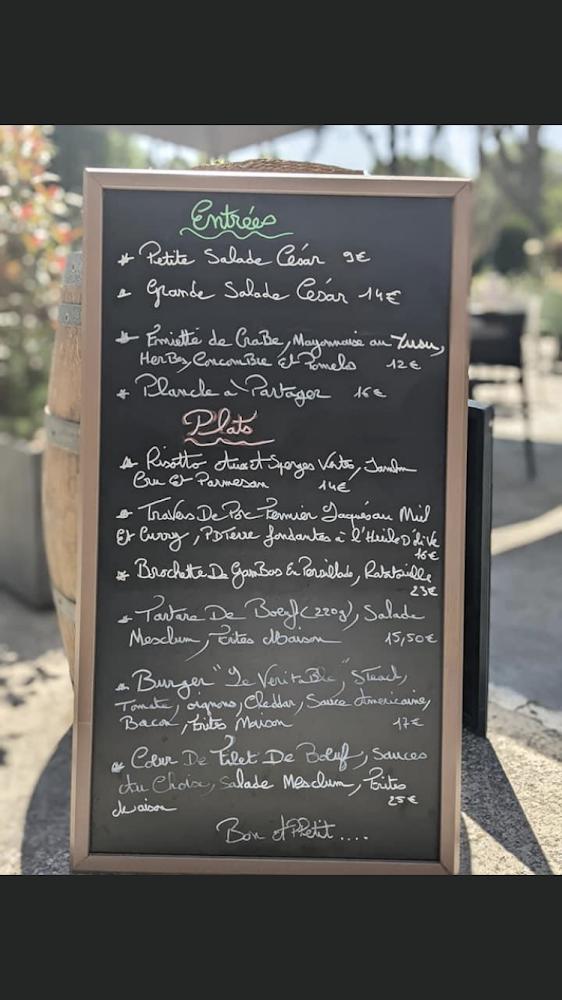 Entrées
* Petite Salade César 9€
* Grande Salade César 14€
* Emietté de Crabe, Mayonnaise au Yuzu,
Herbes, Concombre Et Pomelo 12€
* Planche à Partager 16€
Plats
* Risotto Aux Asperges Vertes, Jambon
Cru Et Parmesan 14€
* Travers De Porc Fermier Laqués au Miel
Et Curry, PDTerre fondantes à l'Huile D'olive
16€
* Brochette De Gambas En Persillade, Ratatouille
23€
* Tartare De Boeuf (220g), Salade
Mesclun, Frites Maison 15,50€
* Burger "Le Veritable", Steack,
Tomate, oignons, Cheddar, Sauce Américaine,
Bacon, Frites Maison 17€
* Coeur De Filet De Boeuf, Sauces
Au Choix, Salade Mesclum, Frites
Maison 25€
Bon Appétit....